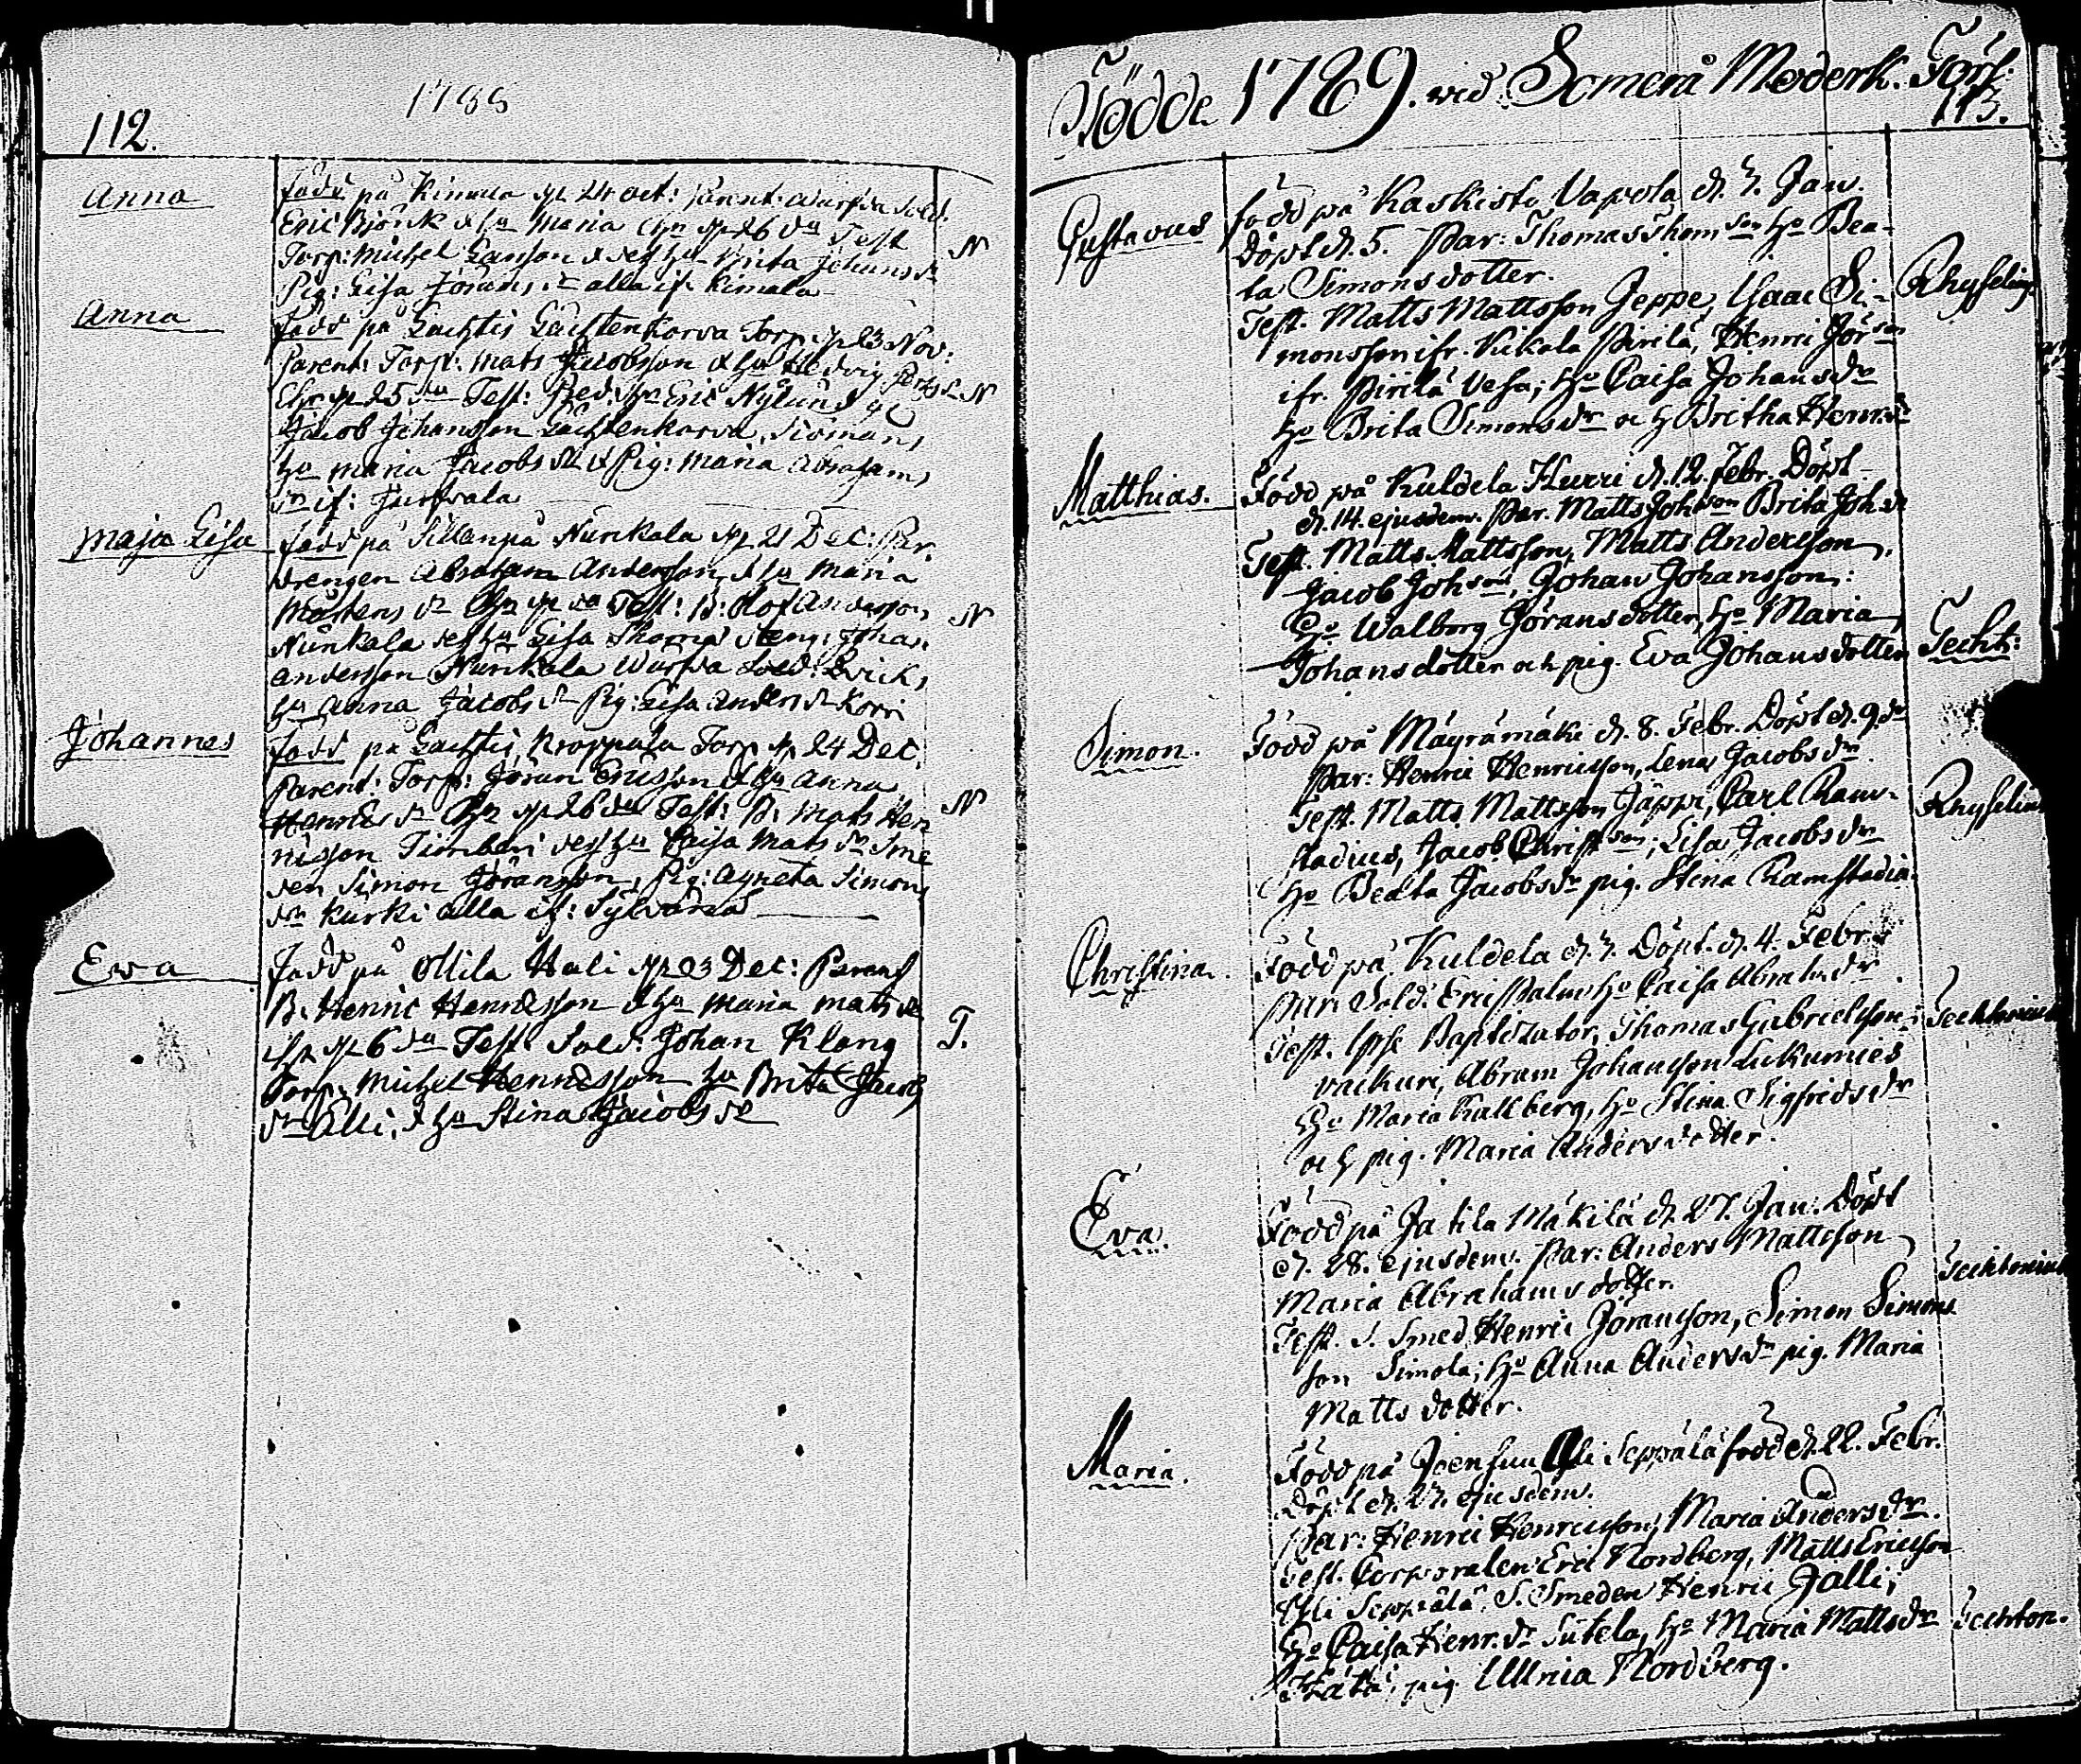 1788
112.
Anna
född på Kimala d. 24 Oct: Parent: Sold.
Eric Björk & hu Maria Chr. d. 26 da Test
Torp: Michel & hu Brita Johans dr
Pig: Lisa Jörans dr alla if. Kimala
N
Anna
född på Lachtis Lachtenkorva Torp d. 23 Nov:
Parent: Torp: Mats Jacobsson & hu Hedvig
Chr. d. 25 da Test: Eric Nylund
Jacob Johansson Lachtenkorva
hu Maria Jacobs dr & Pig: Maria Abrahams
dr if:
N
Maja Lisa
född på Sillanpä Nurikala d. 21 Dec: Par.
drengen Abraham Andersson & hu Maria
Mårtens dr Chr. d. da Test: B: Olof Andersson
Nurikala hu Lisa Thomas dr Johan
Andersson Nurikala Sold: Qvick,
hu Anna Jacobs dr Pig: Lisa Anders dr Korri
N
Johannes
född på Lachtis Kroppula Torp d. 24 Dec.
Parent: Torp: Jöran Ericsson & hu Anna
Henrics dr Chr. d. 26 da Test: B. Mats Hen
ricsson Timberi hu Caisa Mats dr Sme
den Simon Jöransson, Pig: Agneta Simons
dr Kurki alla if: Sylvänä
N
Ewa
född på Ollila Uuli d. 03 Dec: Parent
B. Henric Henricsson & hu Maria Mats dr
Chr. d. 6 da Test. Sold: Johan Klang
Torp: Michel Henricsson hu Brita Jacobs
dr Älli, & hu Stina Jacobs dr
T.
Födde 1789. vid Somerå Moderk. Förs:
113.
Gustavus
född på Kaskisto Vapola d. 3. Jan.
döpt d. 5. Par: Thomas Thomsson ho Bea-
ta Simonsdotter.
Test. Matts Mattsson Jeppe, Isaac Si-
monsson ifr. Kukola Pirilä, Henric Jörson
ifr. Pirilä Vesa; ho Caisa Johansdr
ho Brita Simonsdr och Britha Henr.dr
Rhyselius
Matthias.
Född på Kuldela Hurri d. 12. Febr. Döpt
d. 14. ejusdem. Par. Matts Johson Brita Joh.dr
Test. Matts Mattsson, Matts Andersson,
Jacob Johson, Johan Johansson:
ho Walborg Göransdotter, ho Maria
Johansdotter och pig. Eva Johansdotter
Techt:
Simon.
Född på Mäyrämäki d. 8. Febr. Döpt d. 9. dr
Par: Henric Henricsson, Lena Jacobsdr.
Test. Matts Mattsson Jäppi, Carl Ram-
stadius, Jacob Christson; Lisa Jacobsdr
ho Beata Jacobsdr pig. Stina Ramstadia.
Rhyselius
Christina.
Född på Kuldela d. 3. Döpt. d. 4. Febr.
Par. Sold: Eric Palm ho Caisa Abrah.dr
Test. Ipse Baptizator, Thomas Gabrielsson
Vackuri, Abram Johansson Lukumies
ho Maria Kallberg, ho Stina Sigfridsdr
och pig. Maria Andersdotter.
Techtonius
Eva.
Född på Jatila Mäkilä d. 27. Jan: Döpt
d. 28. ejusdem. Par: Anders Mattsson
Maria Abrahamsdotter.
Test. S. Smed Henric Göransson, Simon Simons
son Simola; ho Anna Andersdr pig. Maria
Mattsdotter.
Techtonius
Maria.
Född på Joensuu Yli Seppälä född d. 22. Febr.
Döpt d. 27. ejusdem.
Par: Henric Henricsson, Maria Andersdr.
Test. Corporalen Eric Nordberg, Matts Ericsson
Yli Seppälä, S. Smeden Henric Jalli;
ho Caisa Henr.dr Sutela, ho Maria Mattsdr
pig. Ulrica Nordberg.
Techton.